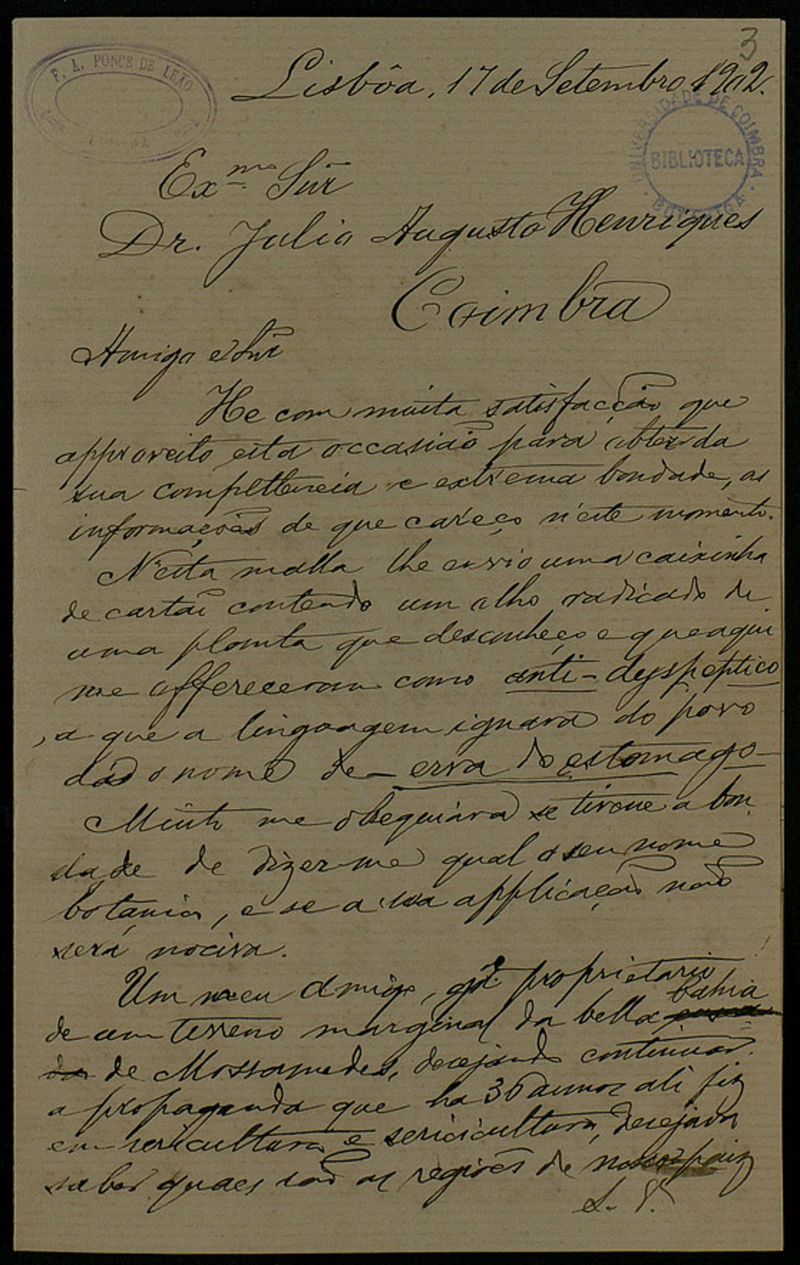 3
F. A. PONCE DE LEÃO
Lisbôa, 17 de Setembro 1902.
UNIVERSIDADE DE COIMBRA
BIBLIOTECA
BOTANICA
Exmo. Snr
Dr. Julio Augusto Henriques
Coimbra
Amigo e Snr
He com muita satisfacção que
approveito esta occasião para obter da
sua competencia e extrema bondade, as
informações de que careço n'este momento.
N'esta malla lhe envio uma caixinha
de cartão contendo um olho radicado de
uma planta que desconheço e que aqui
me offereceram como anti-dyspeptico
, a que a linguagem ignara do povo
dá o nome de - erva do estomago -
Muito me obsequiará se tiver a bon
dade de dizer-me qual o seu nome
botanico, e se a sua applicação não
será nociva.
Um meu amigo, gde. proprietario
de um terreno marginal da bella bahia
de Mossamedes, desejando continuar
a propaganda que ha 36 annos ali fiz
em sericultura e sericicultura, desejava
saber quaes são as regiões de nosso paiz